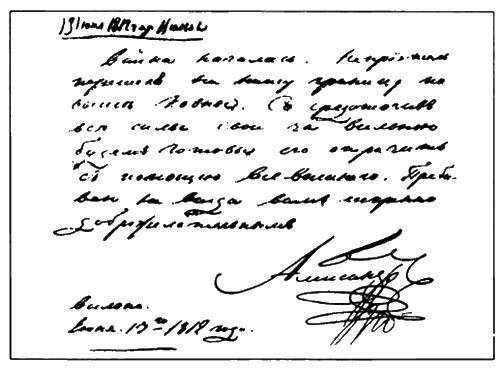 13 июня 1812 год
Война началась. Непрiятель
перешелъ на нашу границу
Ковны. Со средоточивъ
всѣ силы свои за Вильною
будемъ готовы его отразить
съ помощiю Всевышняго. Пребы-
ваю на всегда вамъ искренно
доброжелательнымъ
Александръ
Вильна.
Iюня 13го 1812 года.